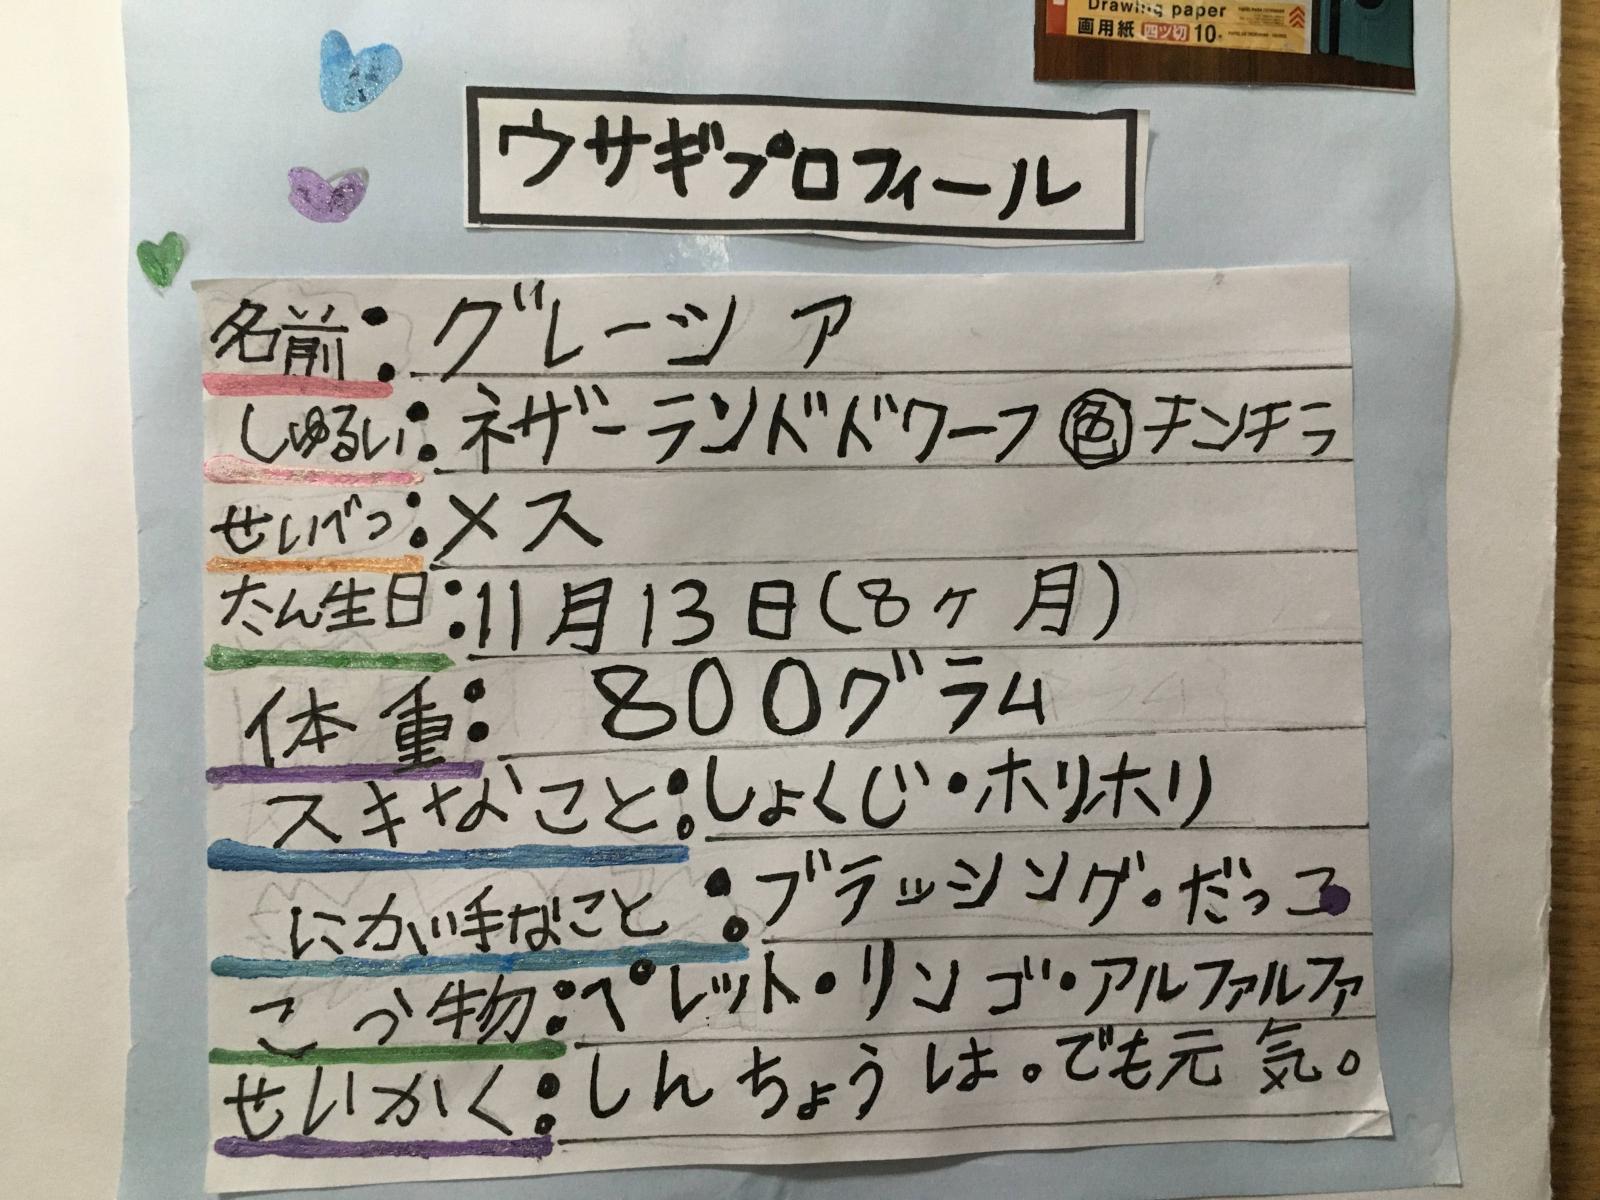 Drawing paper
画用紙 四ツ切 10
ウサギプロフィール
名前：グレーシア
しゅるい：ネザーランドドワーフ 色 チンチラ
せいべつ：メス
たん生日：11月13日(8ヶ月)
体重：800グラム
スキなこと：しょくじ・ホリホリ
にが手なこと：ブラッシング・だっこ
こう物：ペレット・リンゴ・アルファルファ
せいかく：しんちょうは。でも元気。